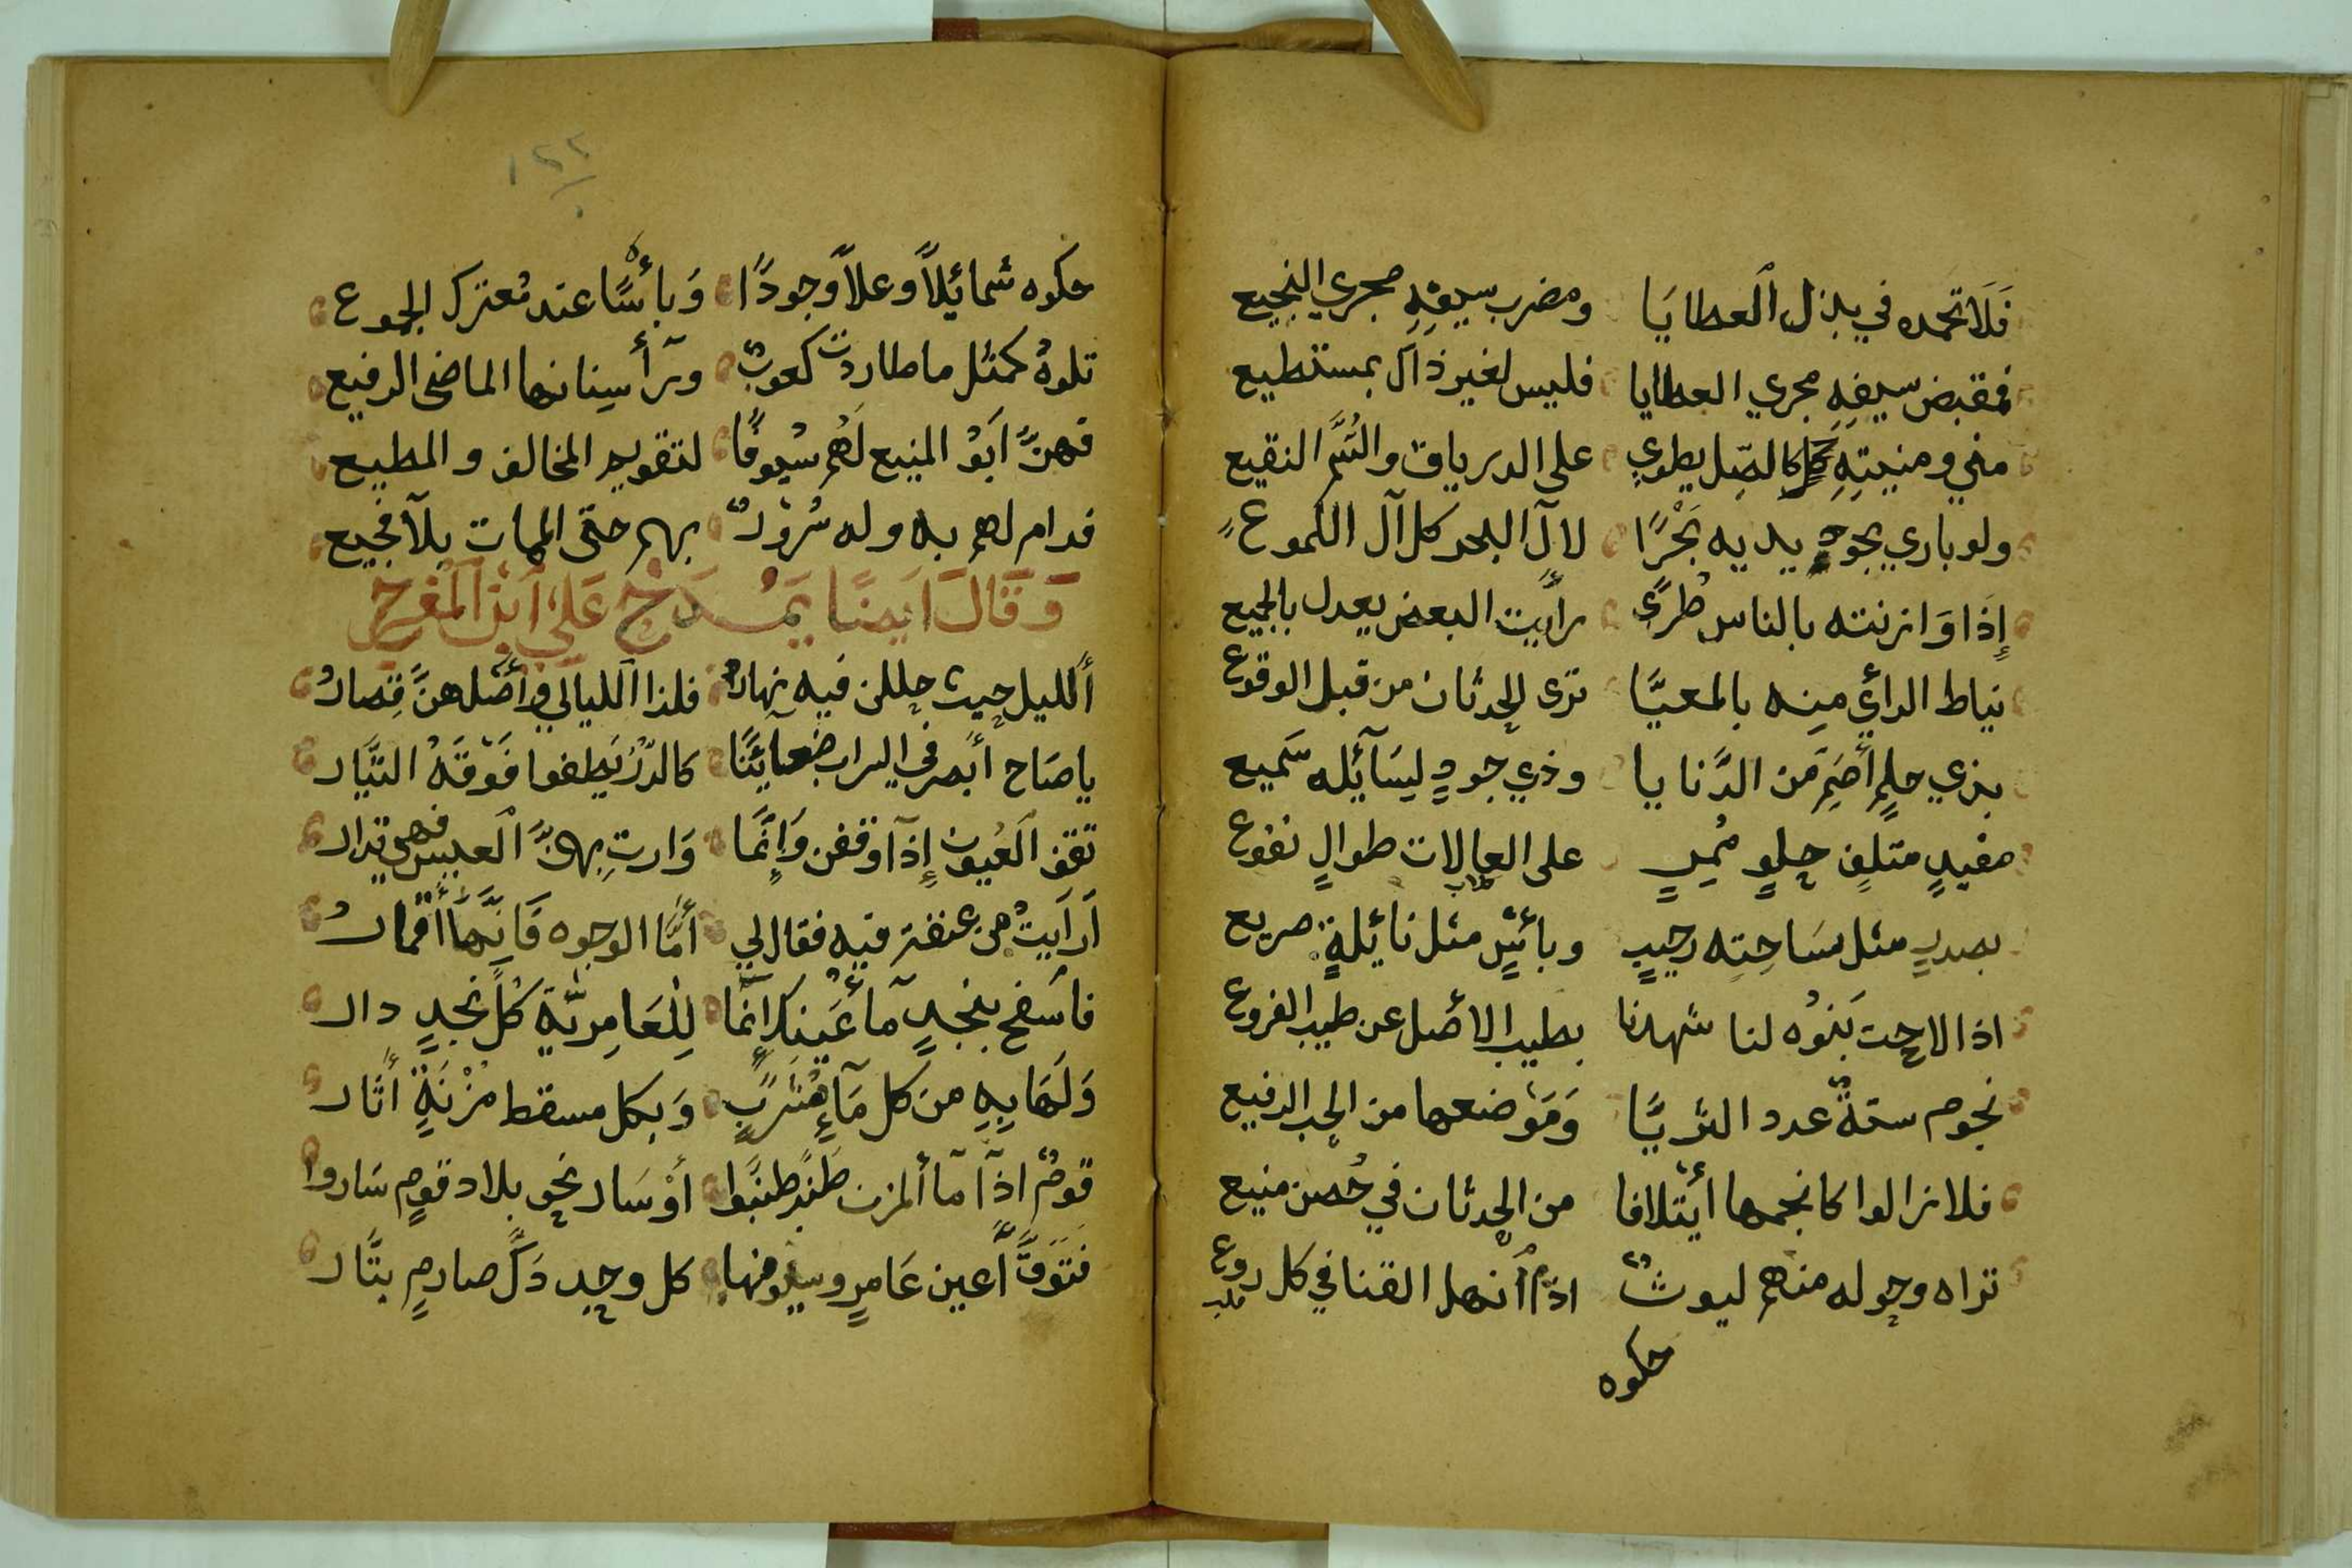 فَلَا تحمده في بذل ٱلعطايَا ومضرب سيفِهِ مجري النجيع
فمقبض سيفهِ مجري العطايا فليس لغير ذاك بمستطيع
مني ومنيتهِ كالصِل يطوي على الدرياق والسُّم النقيع
ولو باري بجودِ يديه بَحْرًا لآل البحر كل آل اللموع
إِذَا وَازنته بالناس طُرًّا رأيت البعض يعدل بالجميع
نياط الرأي منه بالمعيَّا ترى للحدثان من قبل الوقوع
بذي حلمٍ أَصَمٍ من الدَّنايا وذي جودٍ لِسَآئِله سَميع
مفيدٍ متلفٍ حلوٍ مُمِرٍ على العالات طوالٍ نفوع
بصدرٍ مثل سَاحتِه رحيبٍ وبأسٍ مثل نائلةٍ صريع
اذا لاحت بَنُوه لنا شهدنا بطيب الاصل عن طيب الفروع
نجوم ستةٌ عدد الثريَّا وَمَوْضعها من الحب الرفيع
فلا زالوا كانجمها أيتلافا من الحدثان في حُصن منيع
تراه وحوله منهم ليوثٌ اذا أنهل القنا في كل روع
حكوه
١٢٢
حكوه شمائيلاً وعلاً وجودًا وَبأسًا عند مُعترك الجموع
تلوهُ كمثل ما طاردت كعوبٌ ورأسِنانها الماضى الرفيع
فهنَّ ابَوْ المنيع لَهُم سُيوفًا لتقويم المخالف والمطيع
فدام لهم به وله سُرُورٌ بهم حتى الممات بلآ فجيع
وَقَالَ اَيضًا يَمْدَحُ عَلي اَبن اَلمُفرج
أَلليل حيث حللن فيه نهارُ فلذا الليالي وأصلهنَّ قِصارُ
ياصَاح أبصر في السراب ضعآئنًا كالدُّرُّ يَطِفوا فَوْقَهُ التيَّار
تقف اَلعُيون إِذآ وقفن وَإِنَّمَا دَارت بِهنَّ ٱلعيس فهي تدار
اَرَأيتُ من عنفته فيه فقال لي أمَّا الوجوه فَانِهَّا أقمارُ
فاسَفح بنجدٍ مآءُ عَينك إِنَّما لِلْعَامِريَّةِ كُلَّ نجدٍ دار
وَلَهَا بِهِ من كل مَآءٍ مَشَربٍ وَبكل مسقط مُزْنَةٍ أثار
قومٌ اذآ مآ ألمزن طَنَبَ طنبوا أوْ سَار نحو بلاد قومٍ سَاروا
فَتَوَقَّ أَعين عَامرٍ وسيوفها كل وحد دَكَّ صارمٍ بتَّار